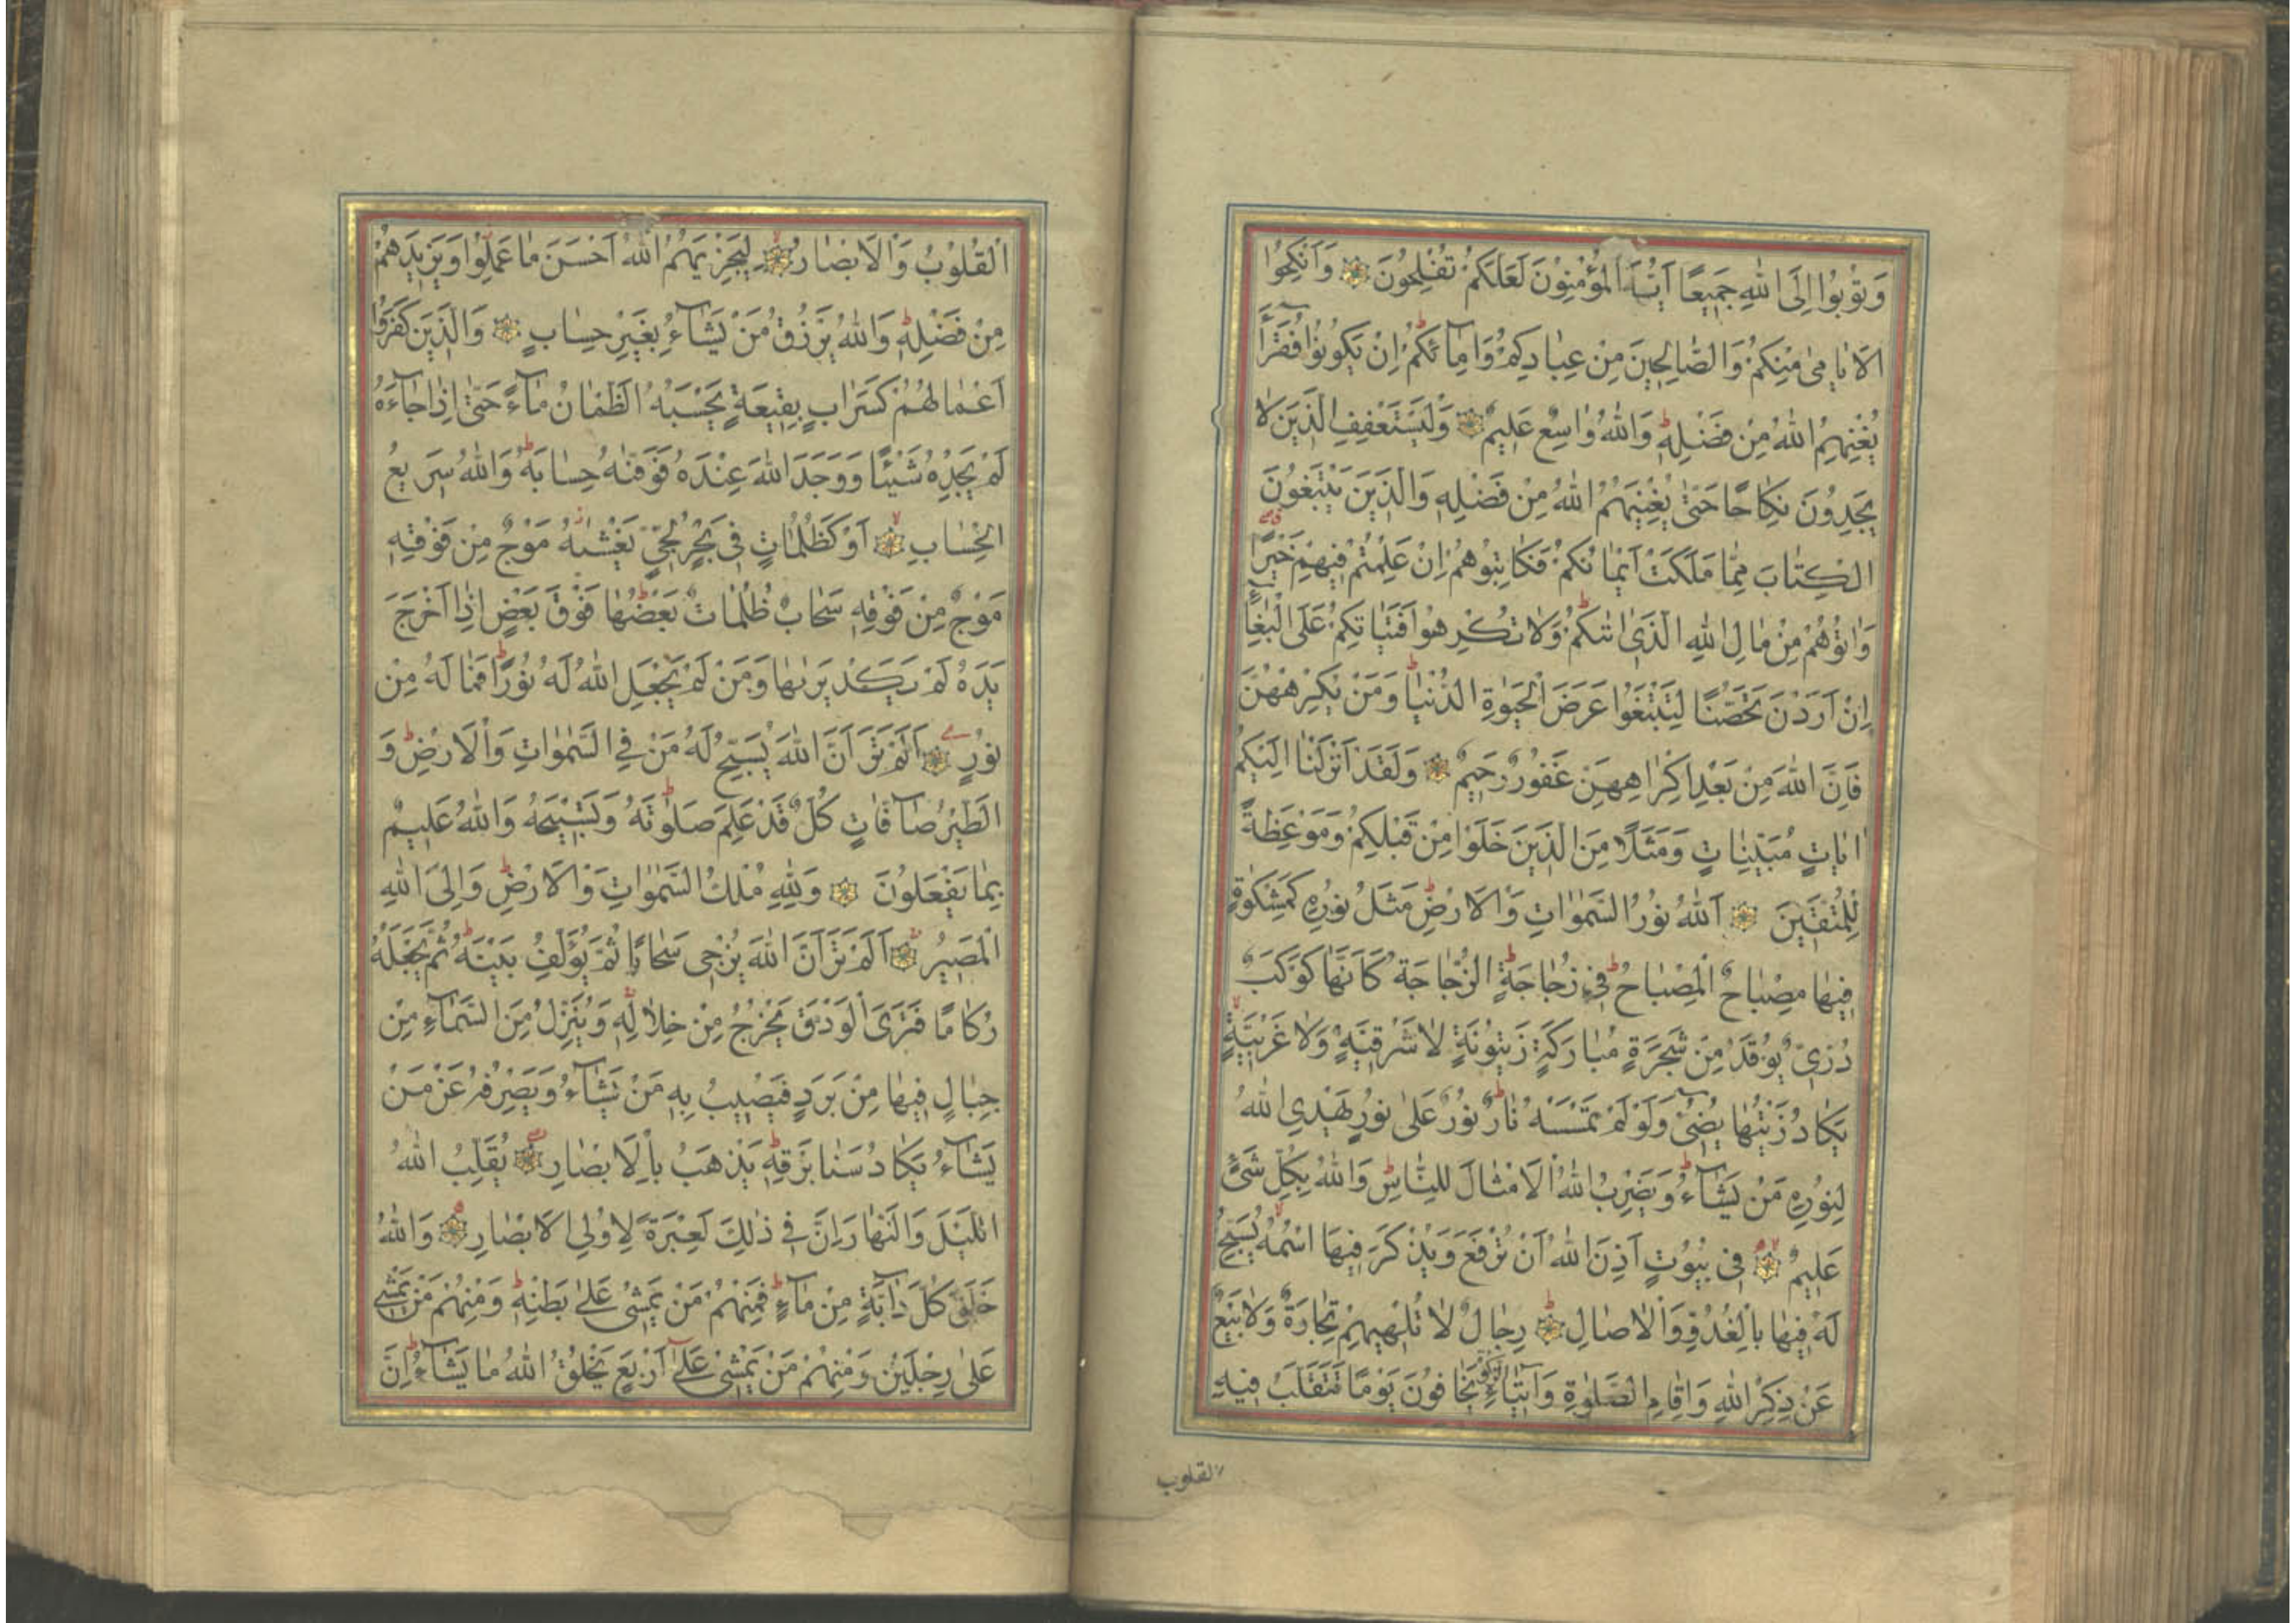 وَتُوبُوا اِلَى اللهِ جَمِيعًا اَيُّهَ الْمُؤْمِنُونَ لَعَلَّكُمْ تُفْلِحُونَ وَاَنْكِحُوا
الْاَيَامٰى مِنْكُمْ وَالصَّالِحِينَ مِنْ عِبَادِكُمْ وَاِمَآئِكُمْ اِنْ يَكُونُوا فُقَرَآءَ
يُغْنِهِمُ اللهُ مِنْ فَضْلِهِ وَاللهُ وَاسِعٌ عَلِيمٌ وَلْيَسْتَعْفِفِ الَّذِينَ لَا
يَجِدُونَ نِكَاحًا حَتّٰى يُغْنِيَهُمُ اللهُ مِنْ فَضْلِهِ وَالَّذِينَ يَبْتَغُونَ
الْكِتَابَ مِمَّا مَلَكَتْ اَيْمَانُكُمْ فَكَاتِبُوهُمْ اِنْ عَلِمْتُمْ فِيهِمْ خَيْرًا
وَاٰتُوهُمْ مِنْ مَالِ اللهِ الَّذِى اٰتٰيكُمْ وَلَا تُكْرِهُوا فَتَيَاتِكُمْ عَلَى الْبِغَآءِ
اِنْ اَرَدْنَ تَحَصُّنًا لِتَبْتَغُوا عَرَضَ الْحَيٰوةِ الدُّنْيَا وَمَنْ يُكْرِهْهُنَّ
فَاِنَّ اللهَ مِنْ بَعْدِ اِكْرَاهِهِنَّ غَفُورٌ رَحِيمٌ وَلَقَدْ اَنْزَلْنَا اِلَيْكُمْ
اٰيَاتٍ مُبَيِّنَاتٍ وَمَثَلًا مِنَ الَّذِينَ خَلَوْا مِنْ قَبْلِكُمْ وَمَوْعِظَةً
لِلْمُتَّقِينَ اَللهُ نُورُ السَّمٰوَاتِ وَالْاَرْضِ مَثَلُ نُورِهِ كَمِشْكٰوةٍ
فِيهَا مِصْبَاحٌ اَلْمِصْبَاحُ فِي زُجَاجَةٍ اَلزُّجَاجَةُ كَاَنَّهَا كَوْكَبٌ
دُرِّىٌّ يُوقَدُ مِنْ شَجَرَةٍ مُبَارَكَةٍ زَيْتُونَةٍ لَا شَرْقِيَّةٍ وَلَا غَرْبِيَّةٍ
يَكَادُ زَيْتُهَا يُضِىءُ وَلَوْ لَمْ تَمْسَسْهُ نَارٌ نُورٌ عَلٰى نُورٍ يَهْدِى اللهُ
لِنُورِهِ مَنْ يَشَآءُ وَيَضْرِبُ اللهُ الْاَمْثَالَ لِلنَّاسِ وَاللهُ بِكُلِّ شَىْءٍ
عَلِيمٌ فِى بُيُوتٍ اَذِنَ اللهُ اَنْ تُرْفَعَ وَيُذْكَرَ فِيهَا اسْمُهُ يُسَبِّحُ
لَهُ فِيهَا بِالْغُدُوِّ وَالْاٰصَالِ رِجَالٌ لَا تُلْهِيهِمْ تِجَارَةٌ وَلَا بَيْعٌ
عَنْ ذِكْرِ اللهِ وَاِقَامِ الصَّلٰوةِ وَاِيتَآءِ الزَّكٰوةِ يَخَافُونَ يَوْمًا تَتَقَلَّبُ فِيهِ
القلوب
الْقُلُوبُ وَالْاَبْصَارُ لِيَجْزِيَهُمُ اللهُ اَحْسَنَ مَا عَمِلُوا وَيَزِيدَهُمْ
مِنْ فَضْلِهِ وَاللهُ يَرْزُقُ مَنْ يَشَآءُ بِغَيْرِ حِسَابٍ وَالَّذِينَ كَفَرُوا
اَعْمَالُهُمْ كَسَرَابٍ بِقِيعَةٍ يَحْسَبُهُ الظَّمْاٰنُ مَآءً حَتّٰى اِذَا جَآءَهُ
لَمْ يَجِدْهُ شَيْئًا وَوَجَدَ اللهَ عِنْدَهُ فَوَفّٰيهُ حِسَابَهُ وَاللهُ سَرِيعُ
الْحِسَابِ اَوْ كَظُلُمَاتٍ فِى بَحْرٍ لُجِّىٍّ يَغْشٰيهُ مَوْجٌ مِنْ فَوْقِهِ
مَوْجٌ مِنْ فَوْقِهِ سَحَابٌ ظُلُمَاتٌ بَعْضُهَا فَوْقَ بَعْضٍ اِذَا اَخْرَجَ
يَدَهُ لَمْ يَكَدْ يَرٰيهَا وَمَنْ لَمْ يَجْعَلِ اللهُ لَهُ نُورًا فَمَا لَهُ مِنْ
نُورٍ اَلَمْ تَرَ اَنَّ اللهَ يُسَبِّحُ لَهُ مَنْ فِي السَّمٰوَاتِ وَالْاَرْضِ وَ
الطَّيْرُ صَآفَّاتٍ كُلٌّ قَدْ عَلِمَ صَلٰوتَهُ وَتَسْبِيحَهُ وَاللهُ عَلِيمٌ
بِمَا يَفْعَلُونَ وَلِلّٰهِ مُلْكُ السَّمٰوَاتِ وَالْاَرْضِ وَاِلَى اللهِ
الْمَصِيرُ اَلَمْ تَرَ اَنَّ اللهَ يُزْجِى سَحَابًا ثُمَّ يُؤَلِّفُ بَيْنَهُ ثُمَّ يَجْعَلُهُ
رُكَامًا فَتَرَى الْوَدْقَ يَخْرُجُ مِنْ خِلَالِهِ وَيُنَزِّلُ مِنَ السَّمَآءِ مِنْ
جِبَالٍ فِيهَا مِنْ بَرَدٍ فَيُصِيبُ بِهِ مَنْ يَشَآءُ وَيَصْرِفُهُ عَنْ مَنْ
يَشَآءُ يَكَادُ سَنَا بَرْقِهِ يَذْهَبُ بِالْاَبْصَارِ يُقَلِّبُ اللهُ
الَّيْلَ وَالنَّهَارَ اِنَّ فِي ذٰلِكَ لَعِبْرَةً لِاُولِى الْاَبْصَارِ وَاللهُ
خَلَقَ كُلَّ دَآبَّةٍ مِنْ مَآءٍ فَمِنْهُمْ مَنْ يَمْشِى عَلٰى بَطْنِهِ وَمِنْهُمْ مَنْ يَمْشِى
عَلٰى رِجْلَيْنِ وَمِنْهُمْ مَنْ يَمْشِى عَلٰى اَرْبَعٍ يَخْلُقُ اللهُ مَا يَشَآءُ اِنَّ